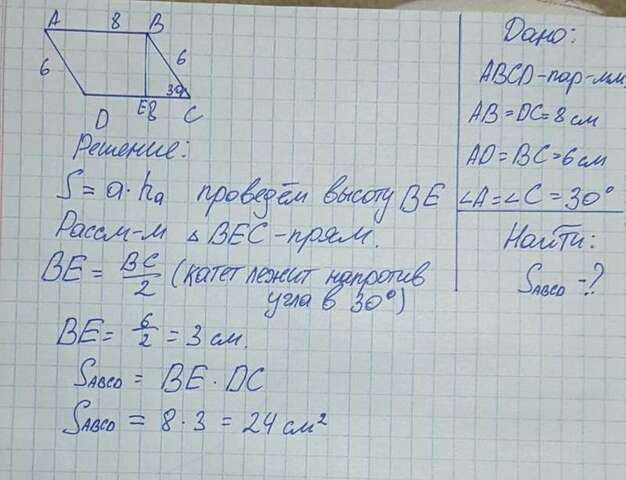 A 8 B
6 6
30°
D E 8 C
Дано:
ABCD-пар-мм
AB=DC=8см
AD=BC=6см
∠A=∠C=30°
Найти:
SABCD-?
Решение:
S=a·ha проведём высоту BE
Рассм-м △BEC-прям.
BE= BC/2 (катет лежит напротив
угла в 30°)
BE= 6/2 =3см.
SABCD = BE·DC
SABCD = 8·3=24см²